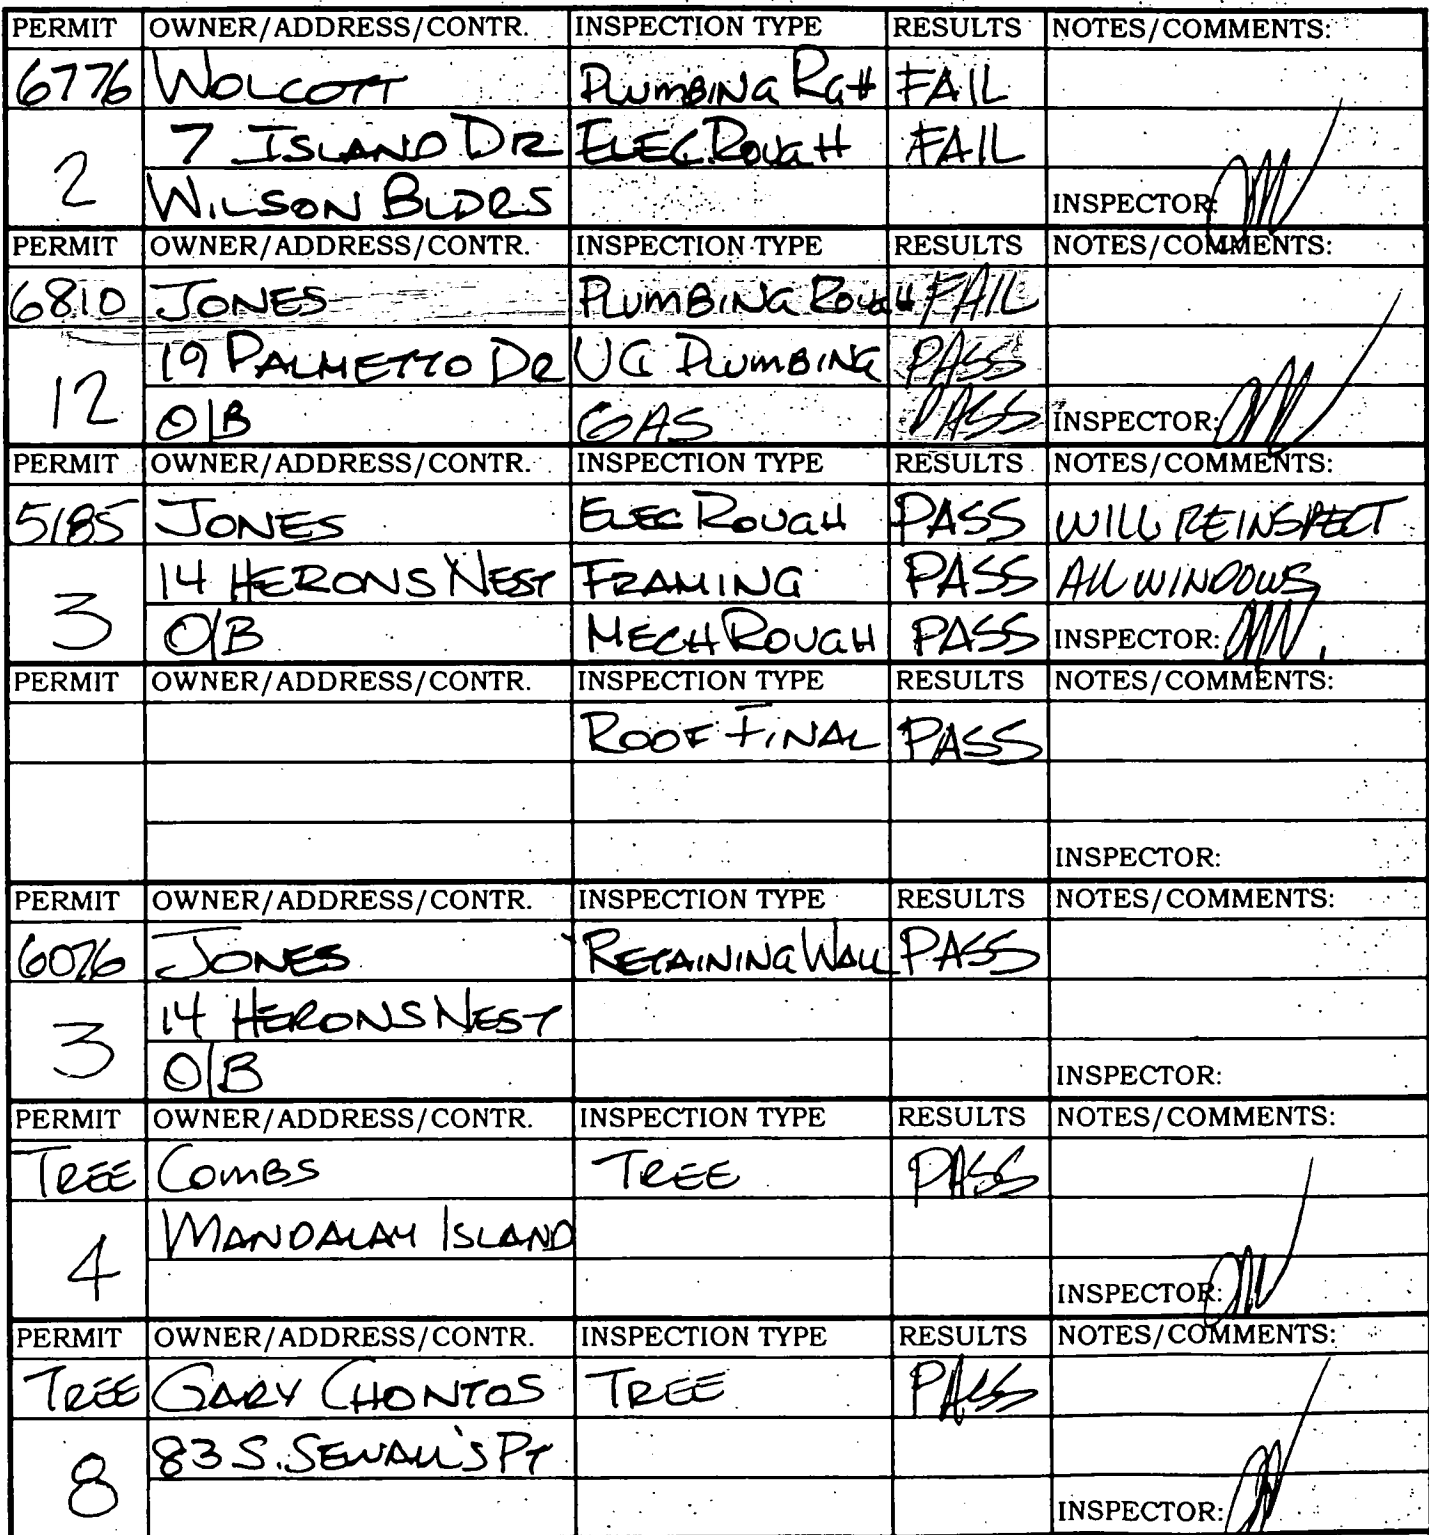 PERMIT OWNER/ADDRESS/CONTR. INSPECTION TYPE RESULTS NOTES/COMMENTS:
6776 WOLCOTT PLUMBING RGH FAIL
2 7 ISLAND DR ELEC. ROUGH FAIL
WILSON BLDRS INSPECTOR:
PERMIT OWNER/ADDRESS/CONTR. INSPECTION TYPE RESULTS NOTES/COMMENTS:
6810 JONES PLUMBING ROUGH FAIL
12 19 PALMETTO DR UG PLUMBING PASS
O/B GAS PASS INSPECTOR:
PERMIT OWNER/ADDRESS/CONTR. INSPECTION TYPE RESULTS NOTES/COMMENTS:
5185 JONES ELEC ROUGH PASS WILL REINSPECT
3 14 HERONS NEST FRAMING PASS ALL WINDOWS
O/B MECH ROUGH PASS INSPECTOR:
PERMIT OWNER/ADDRESS/CONTR. INSPECTION TYPE RESULTS NOTES/COMMENTS:
ROOF FINAL PASS
INSPECTOR:
PERMIT OWNER/ADDRESS/CONTR. INSPECTION TYPE RESULTS NOTES/COMMENTS:
6076 JONES RETAINING WALL PASS
3 14 HERONS NEST
O/B INSPECTOR:
PERMIT OWNER/ADDRESS/CONTR. INSPECTION TYPE RESULTS NOTES/COMMENTS:
TREE COMBS TREE PASS
4 MANDALAY ISLAND
INSPECTOR:
PERMIT OWNER/ADDRESS/CONTR. INSPECTION TYPE RESULTS NOTES/COMMENTS:
TREE GARY CHONTOS TREE PASS
8 83 S. SEWALL'S PT
INSPECTOR: